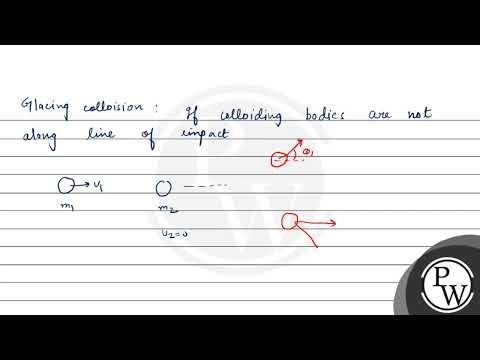 Glacing colloision : If colloiding bodies are not
along line of impact
θ1
u1
m1
m2
u2=0
P
W
P
W